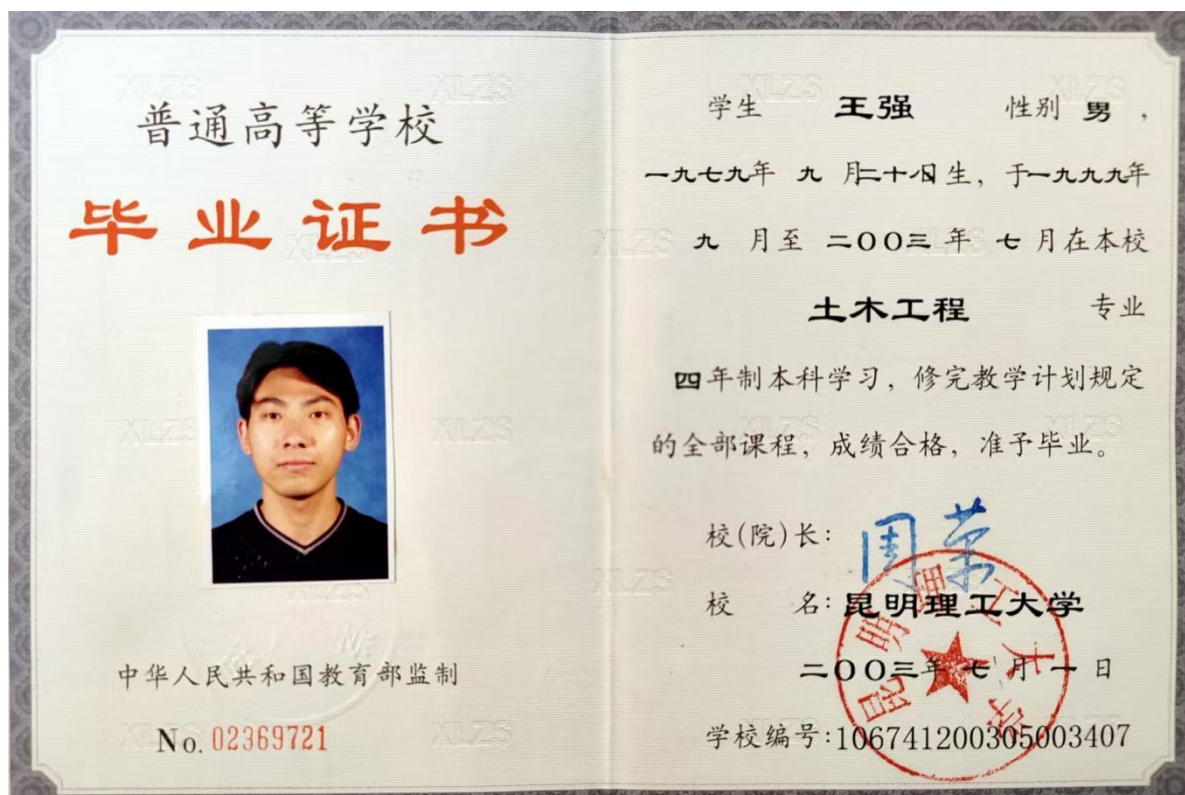 普通高等学校
毕业证书
中华人民共和国教育部监制
No. 02369721
学生 王强 性别 男，
一九七九年 九 月二十八日生，于一九九九年
九 月至 二〇〇三 年 七 月在本校
土木工程 专业
四年制本科学习，修完教学计划规定
的全部课程，成绩合格，准予毕业。
校(院)长： 周荣
校 名：昆明理工大学
二〇〇三年 七 月 一 日
学校编号：106741200305003407
昆明理工大学
XLZS